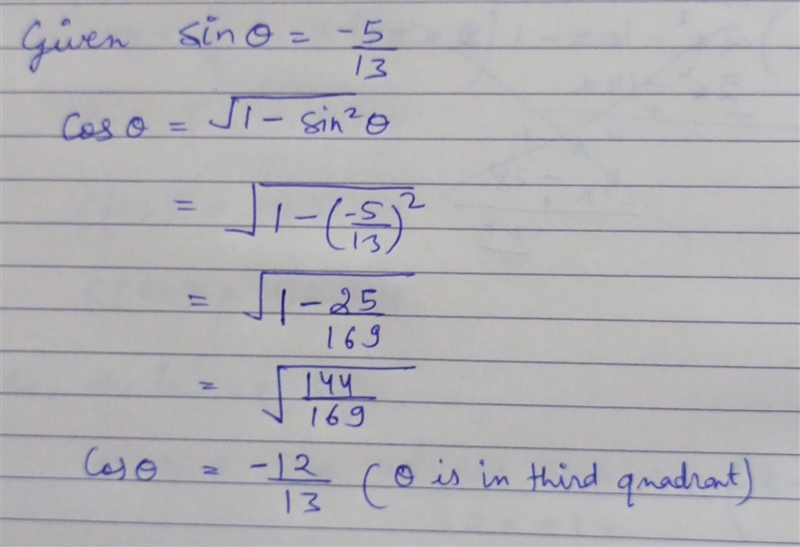 Given sinθ = -5/13
Cosθ = √(1 - Sin²θ)
= √(1 - (-5/13)²)
= √(1 - 25/169)
= √(144/169)
Cosθ = -12/13 (θ is in third quadrant)